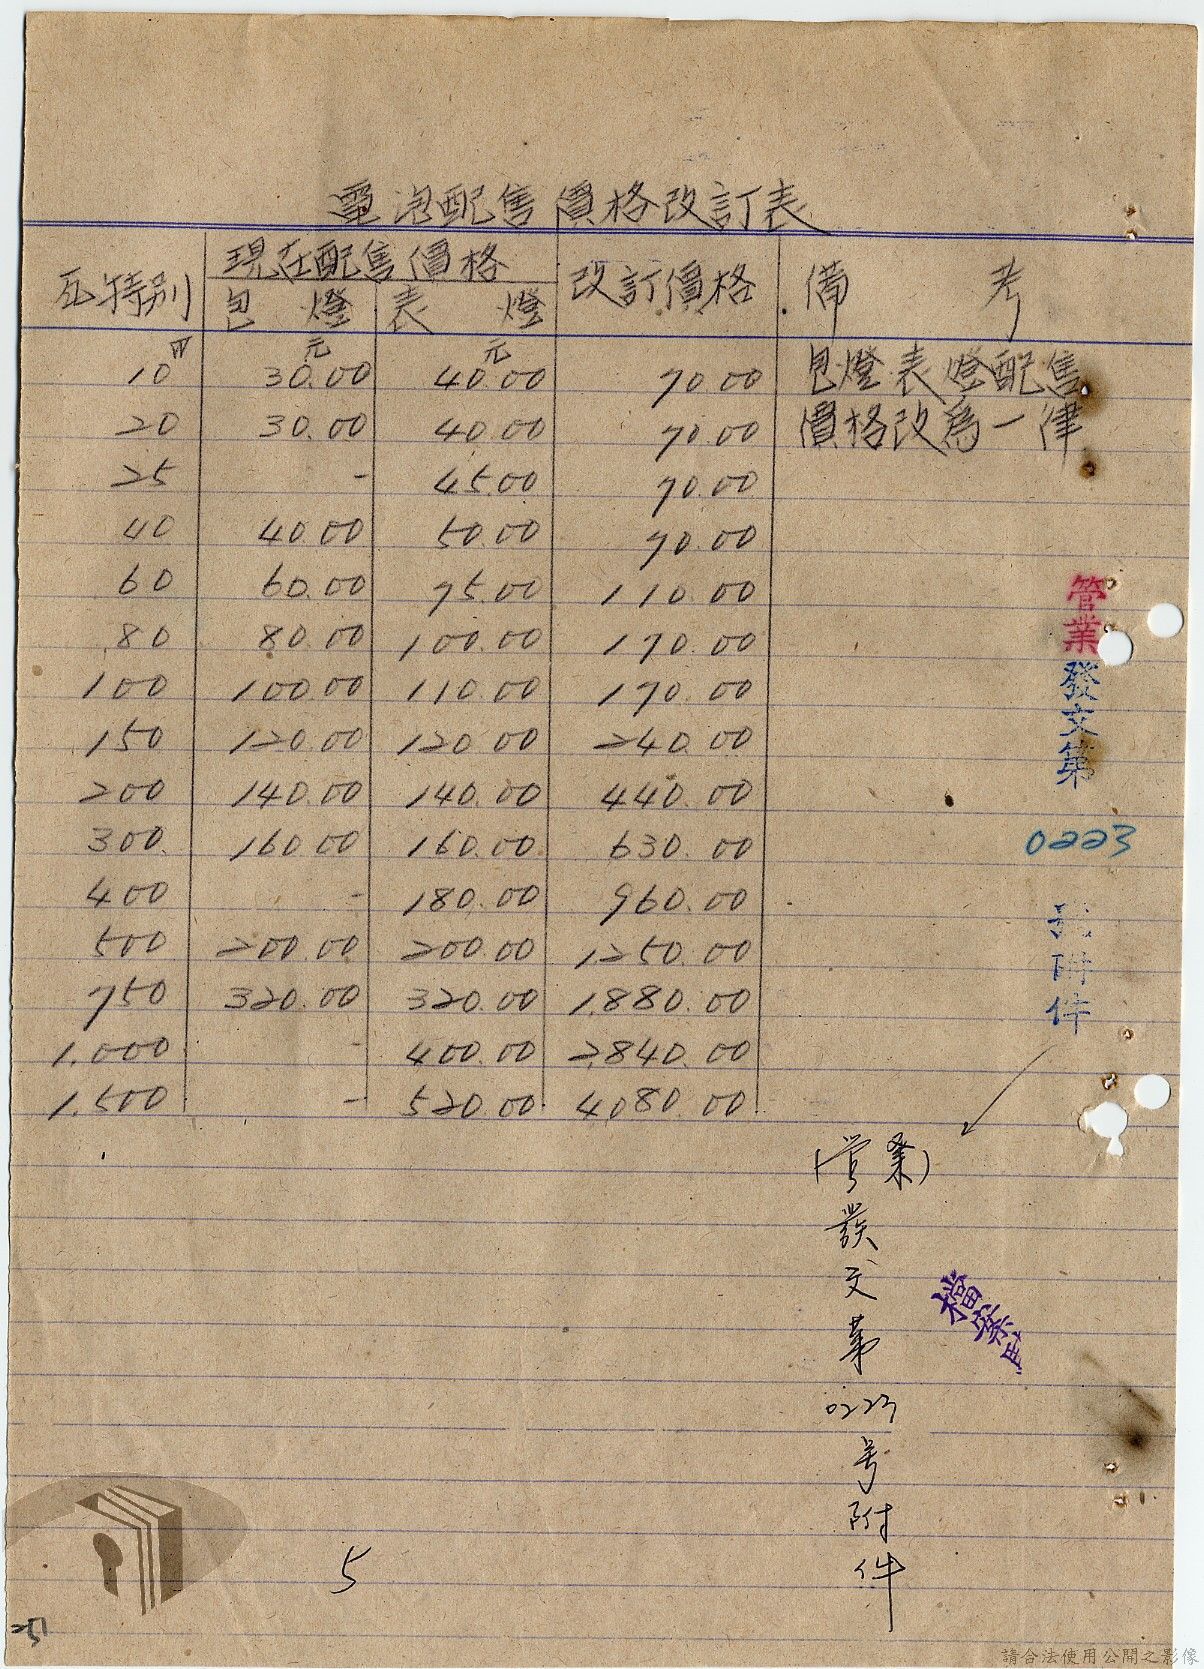 電泡配售價格改訂表
瓦特別 現在配售價格 改訂價格 備考
包燈 表燈
W 元 元
10 30.00 40.00 70.00 包燈表燈配售
20 30.00 40.00 70.00 價格改為一律
25 - 45.00 70.00
40 40.00 50.00 70.00
60 60.00 75.00 110.00
80 80.00 100.00 170.00
100 100.00 110.00 170.00
150 120.00 120.00 240.00
200 140.00 140.00 440.00
300 160.00 160.00 630.00
400 - 180.00 960.00
500 200.00 200.00 1,250.00
750 320.00 320.00 1,880.00
1,000 - 400.00 2,840.00
1,500 - 520.00 4,080.00
管業發文第
0223
號附件
(營業)發文第0223号附件
檔案
5
請合法使用公開之影像